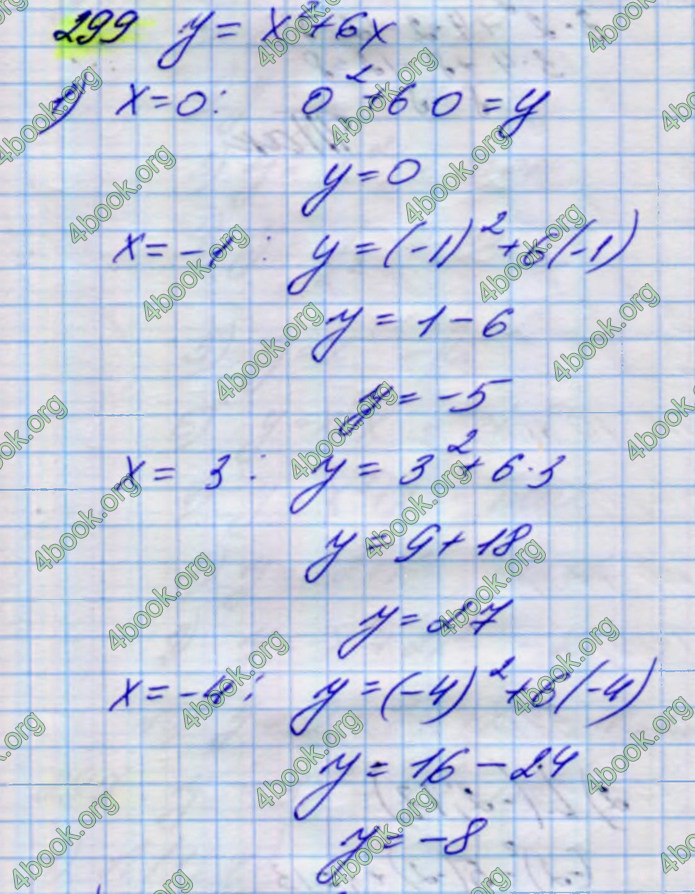 299 y = x²+6x
1) x=0: 0²+6·0=y
y=0
x=-1: y=(-1)²+6(-1)
y=1-6
y=-5
x=3: y=3²+6·3
y=9+18
y=27
x=-4: y=(-4)²+6(-4)
y=16-24
y=-8
4book.org